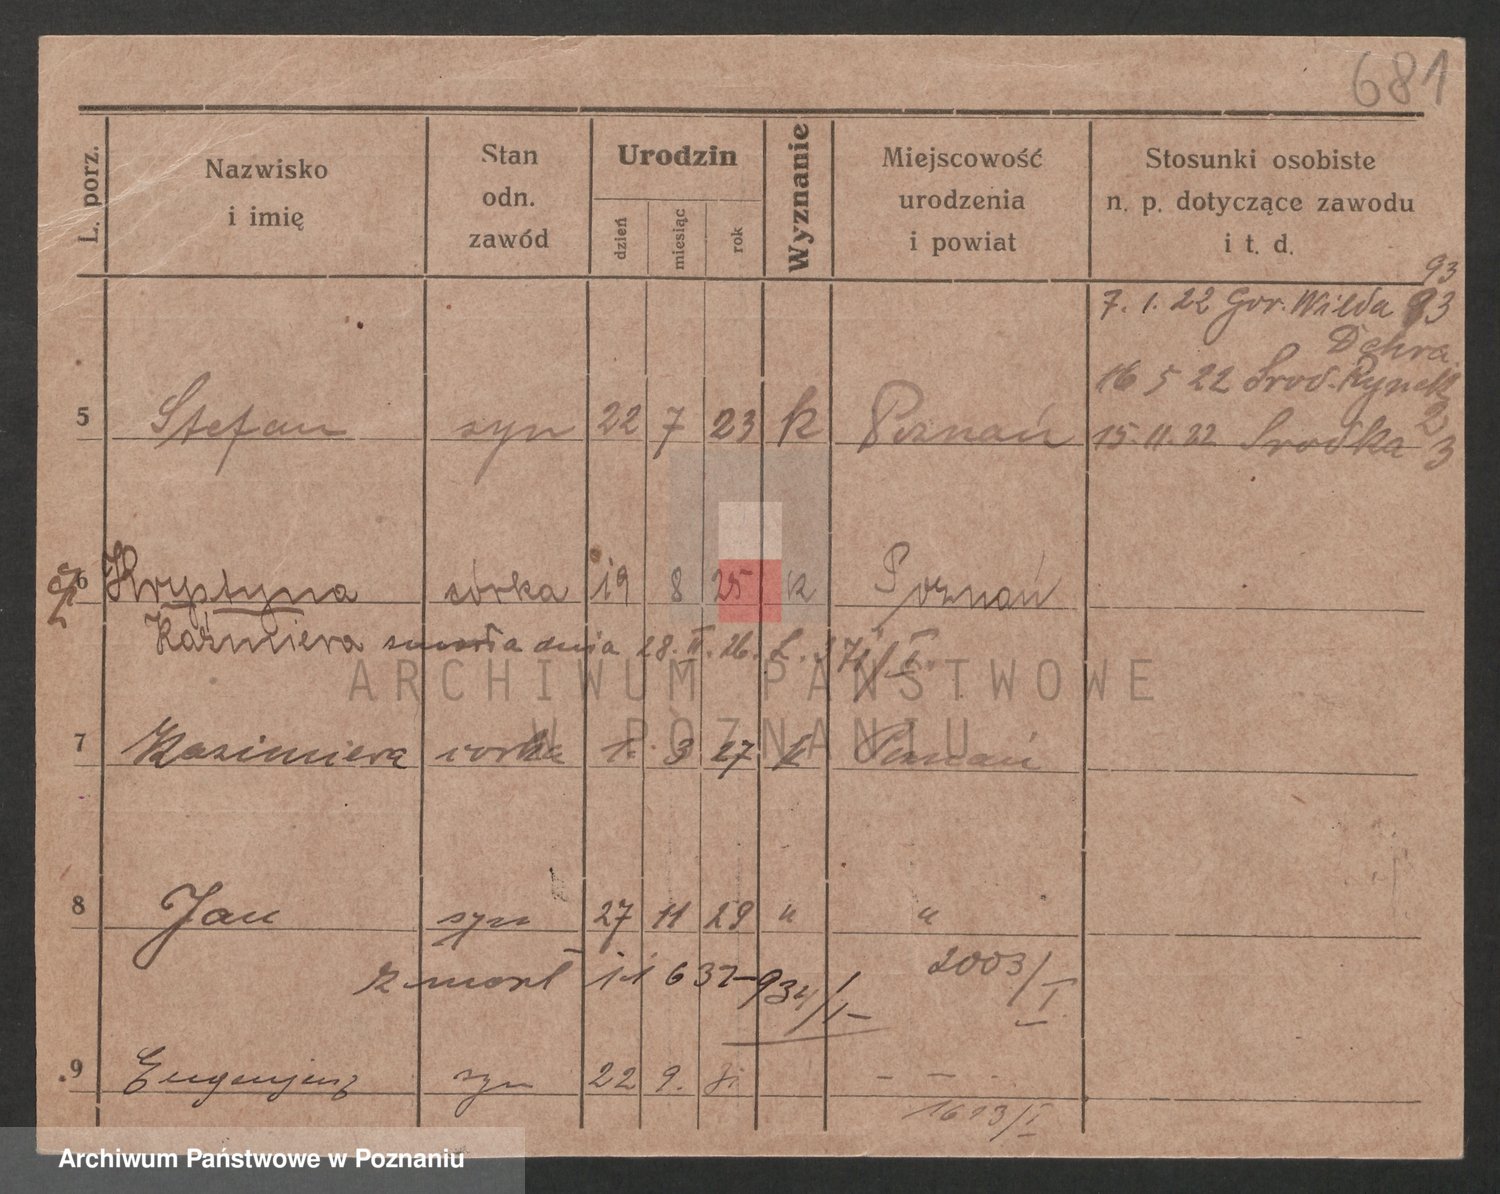 681
L. porz.
Nazwisko i imię
Stan odn. zawód
Urodzin
dzień miesiąc rok
Wyznanie
Miejscowość urodzenia i powiat
Stosunki osobiste n. p. dotyczące zawodu i t. d.
93
7. 1. 22 Gor. Wilda 93
16 5 22 Srod. Rynek 2
5 Stefan syn 22 7 23 k Poznań 15. 11. 22 Srodka 3
6 Krystyna córka 19 8 25 k Poznań
Kaźmiera zmarła dnia 28. II. 26. L. 371/I.
7 Kazimiera corka 1. 3 27 k Poznań
8 Jan syn 27 11 29 " "
zmarł 11 6 32 - 934/I 2003/I
9 Eugenjusz syn 22 9. 31 - - -
1613/I
ARCHIWUM PAŃSTWOWE
W POZNANIU
Archiwum Państwowe w Poznaniu